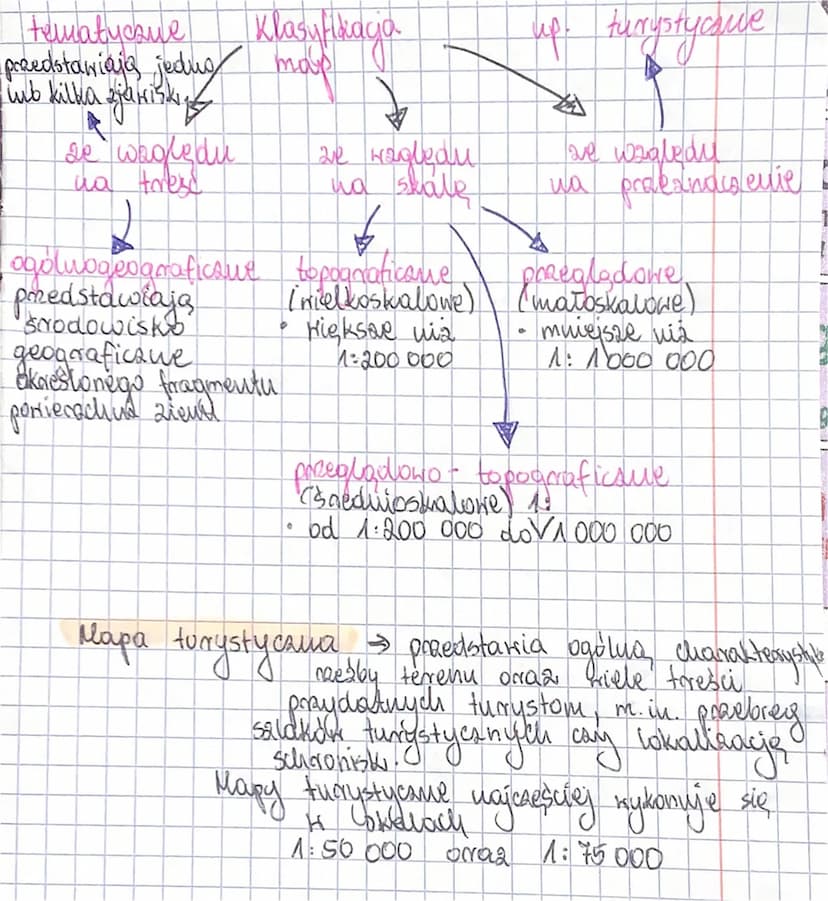 Klasyfikacja
map
tematyczne
przedstawiają jedno
lub kilka zjawisk
np. turystyczne
ze względu
na treść
ze względu
na skalę
ze względu
na przeznaczenie
ogólnogeograficzne
przedstawiają
środowisko
geograficzne
określonego fragmentu
powierzchni ziemi
topograficzne
(wielkoskalowe)
• większe niż
1:200 000
przeglądowe
(małoskalowe)
• mniejsze niż
1: 1 000 000
przeglądowo - topograficzne
(średnioskalowe) 1:
• od 1:200 000 do V 1 000 000
Mapa turystyczna → przedstawia ogólną charakterystykę
rzeźby terenu oraz wiele treści
przydatnych turystom, m.in. przebieg
szlaków turystycznych czy lokalizację
schronisk.
Mapy turystyczne najczęściej wykonuje się
w skalach
1:50 000 oraz 1:75 000